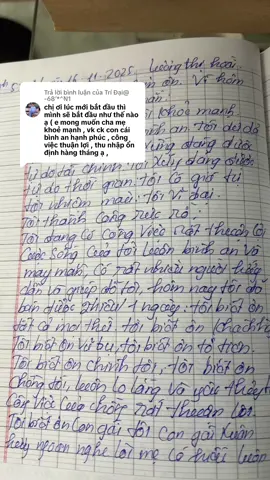 11 - 2025
Lương thụ hưởng
Trả lời bình luận của Trí Đại@
~68°*^N1
chị ơi lúc mới bắt đầu thì
mình sẽ bắt đầu như thế nào
ạ ( e mong muốn cha mẹ
khoẻ mạnh , vk ck con cái
bình an hạnh phúc , công
việc thuận lợi , thu nhập ổn
định hàng tháng ạ ,
ơn. Vì hôm
khoẻ mạnh
bình an tôi tự do
tự do tài chính. Tôi xứng đáng được
tự do thời gian. tôi có giá trị
tôi nhiều may. tôi vĩ đại.
Tôi thành công rực rỡ.
Tôi đang có công việc rất thuận lợi
Cuộc sống của tôi luôn bình an và
may mắn, có rất nhiều người hướng
dẫn và giúp đỡ tôi, hôm nay tôi đã
bán được nhiều ngày. tôi biết ơn
tất cả mọi thứ. tôi biết ơn khách
Tôi biết ơn vũ trụ, tôi biết ơn tổ tiên.
Tôi biết ơn chính tôi, tôi biết ơn
chồng tôi, luôn lo lắng và yêu thương
Công việc của chồng rất thuận lợi.
Tôi biết ơn con gái tôi con gái
ngoan nghe lời mẹ luôn